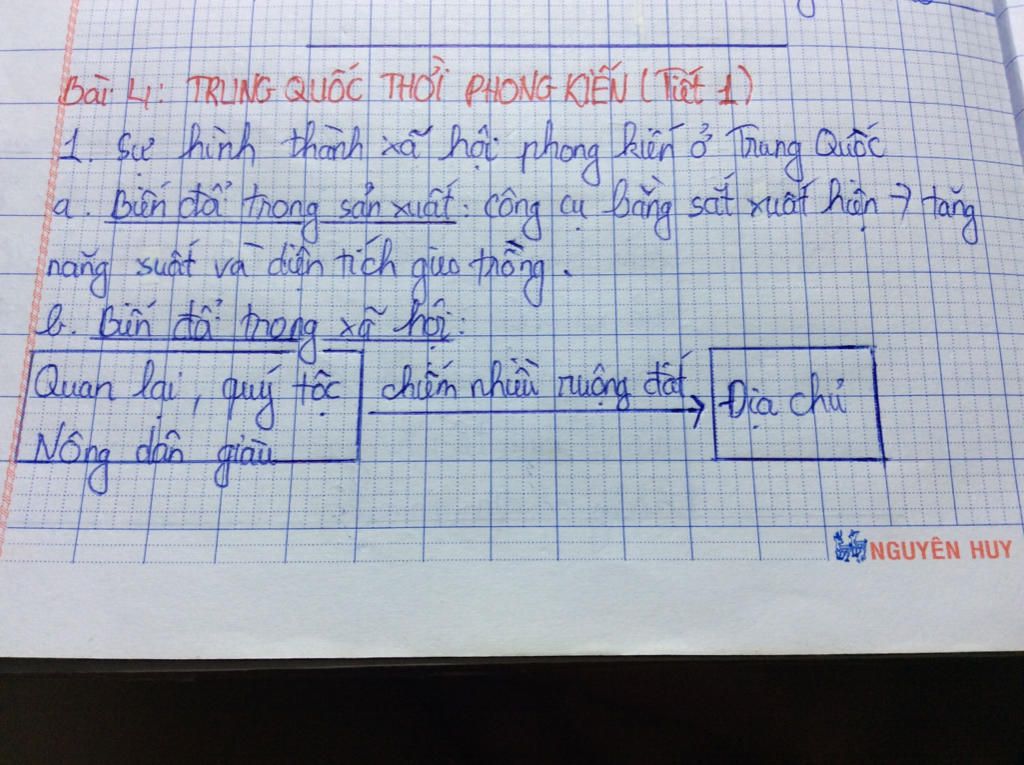 Bài 4: TRUNG QUỐC THỜI PHONG KIẾN (Tiết 1)
1. Sự hình thành xã hội phong kiến ở Trung Quốc
a. Biến đổi trong sản xuất: Công cụ bằng sắt xuất hiện → tăng
năng suất và diện tích gieo trồng.
b. Biến đổi trong xã hội:
Quan lại, quý tộc
Nông dân giàu
chiếm nhiều ruộng đất
Địa chủ
NGUYÊN HUY